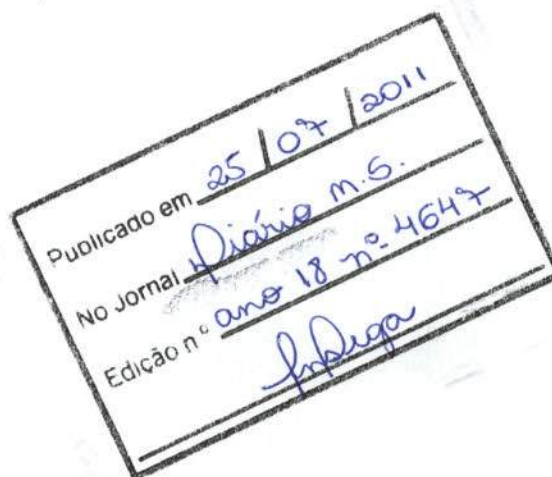 Publicado em 25 / 07 / 2011
No Jornal Diário M.S.
Edição nº ano 18 nº 4647